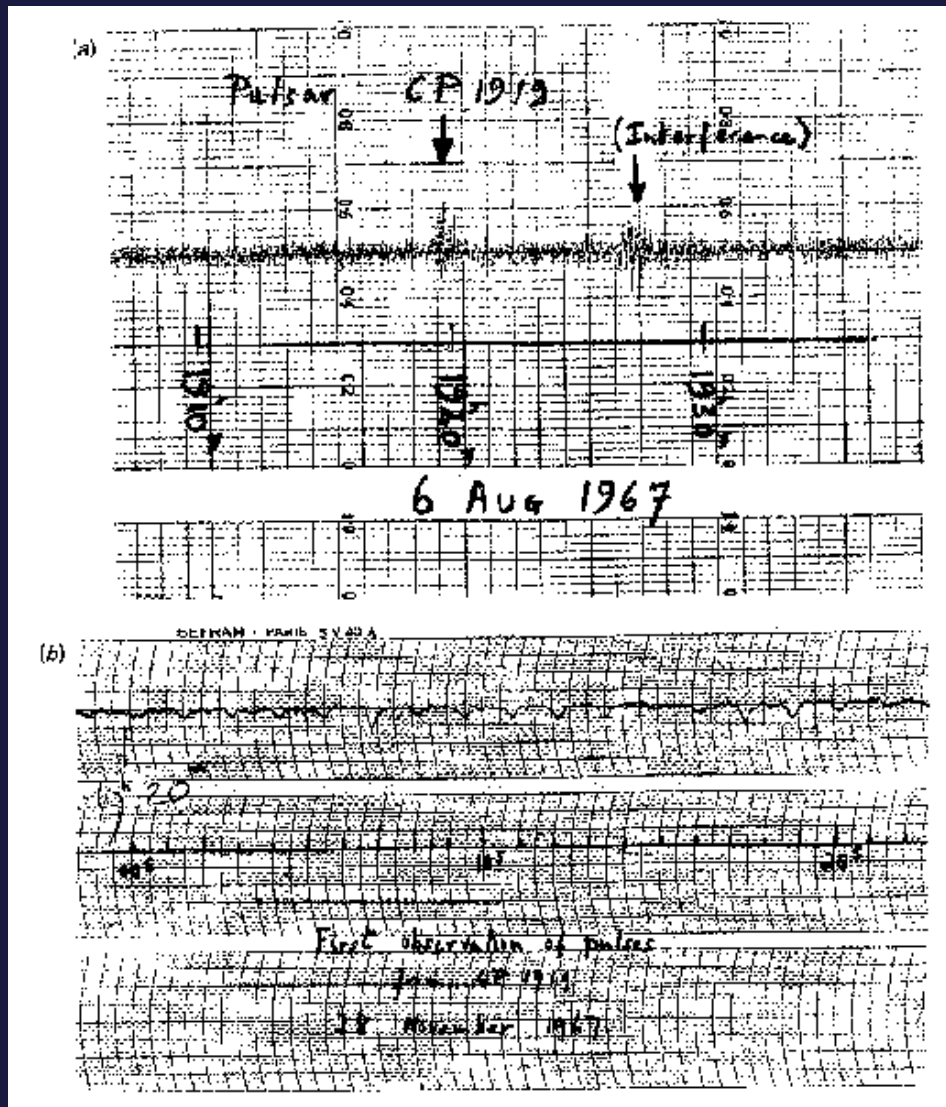 (a)
Pulsar CP 1919
(Interference)
0.8
0.8
0.6
0.6
0.4
0.2
1910
1920
1930
0
6 AUG 1967
1.0
0
0
(b)
20
10s
20s
First observation of pulses
from CP 1919
28 November 1967